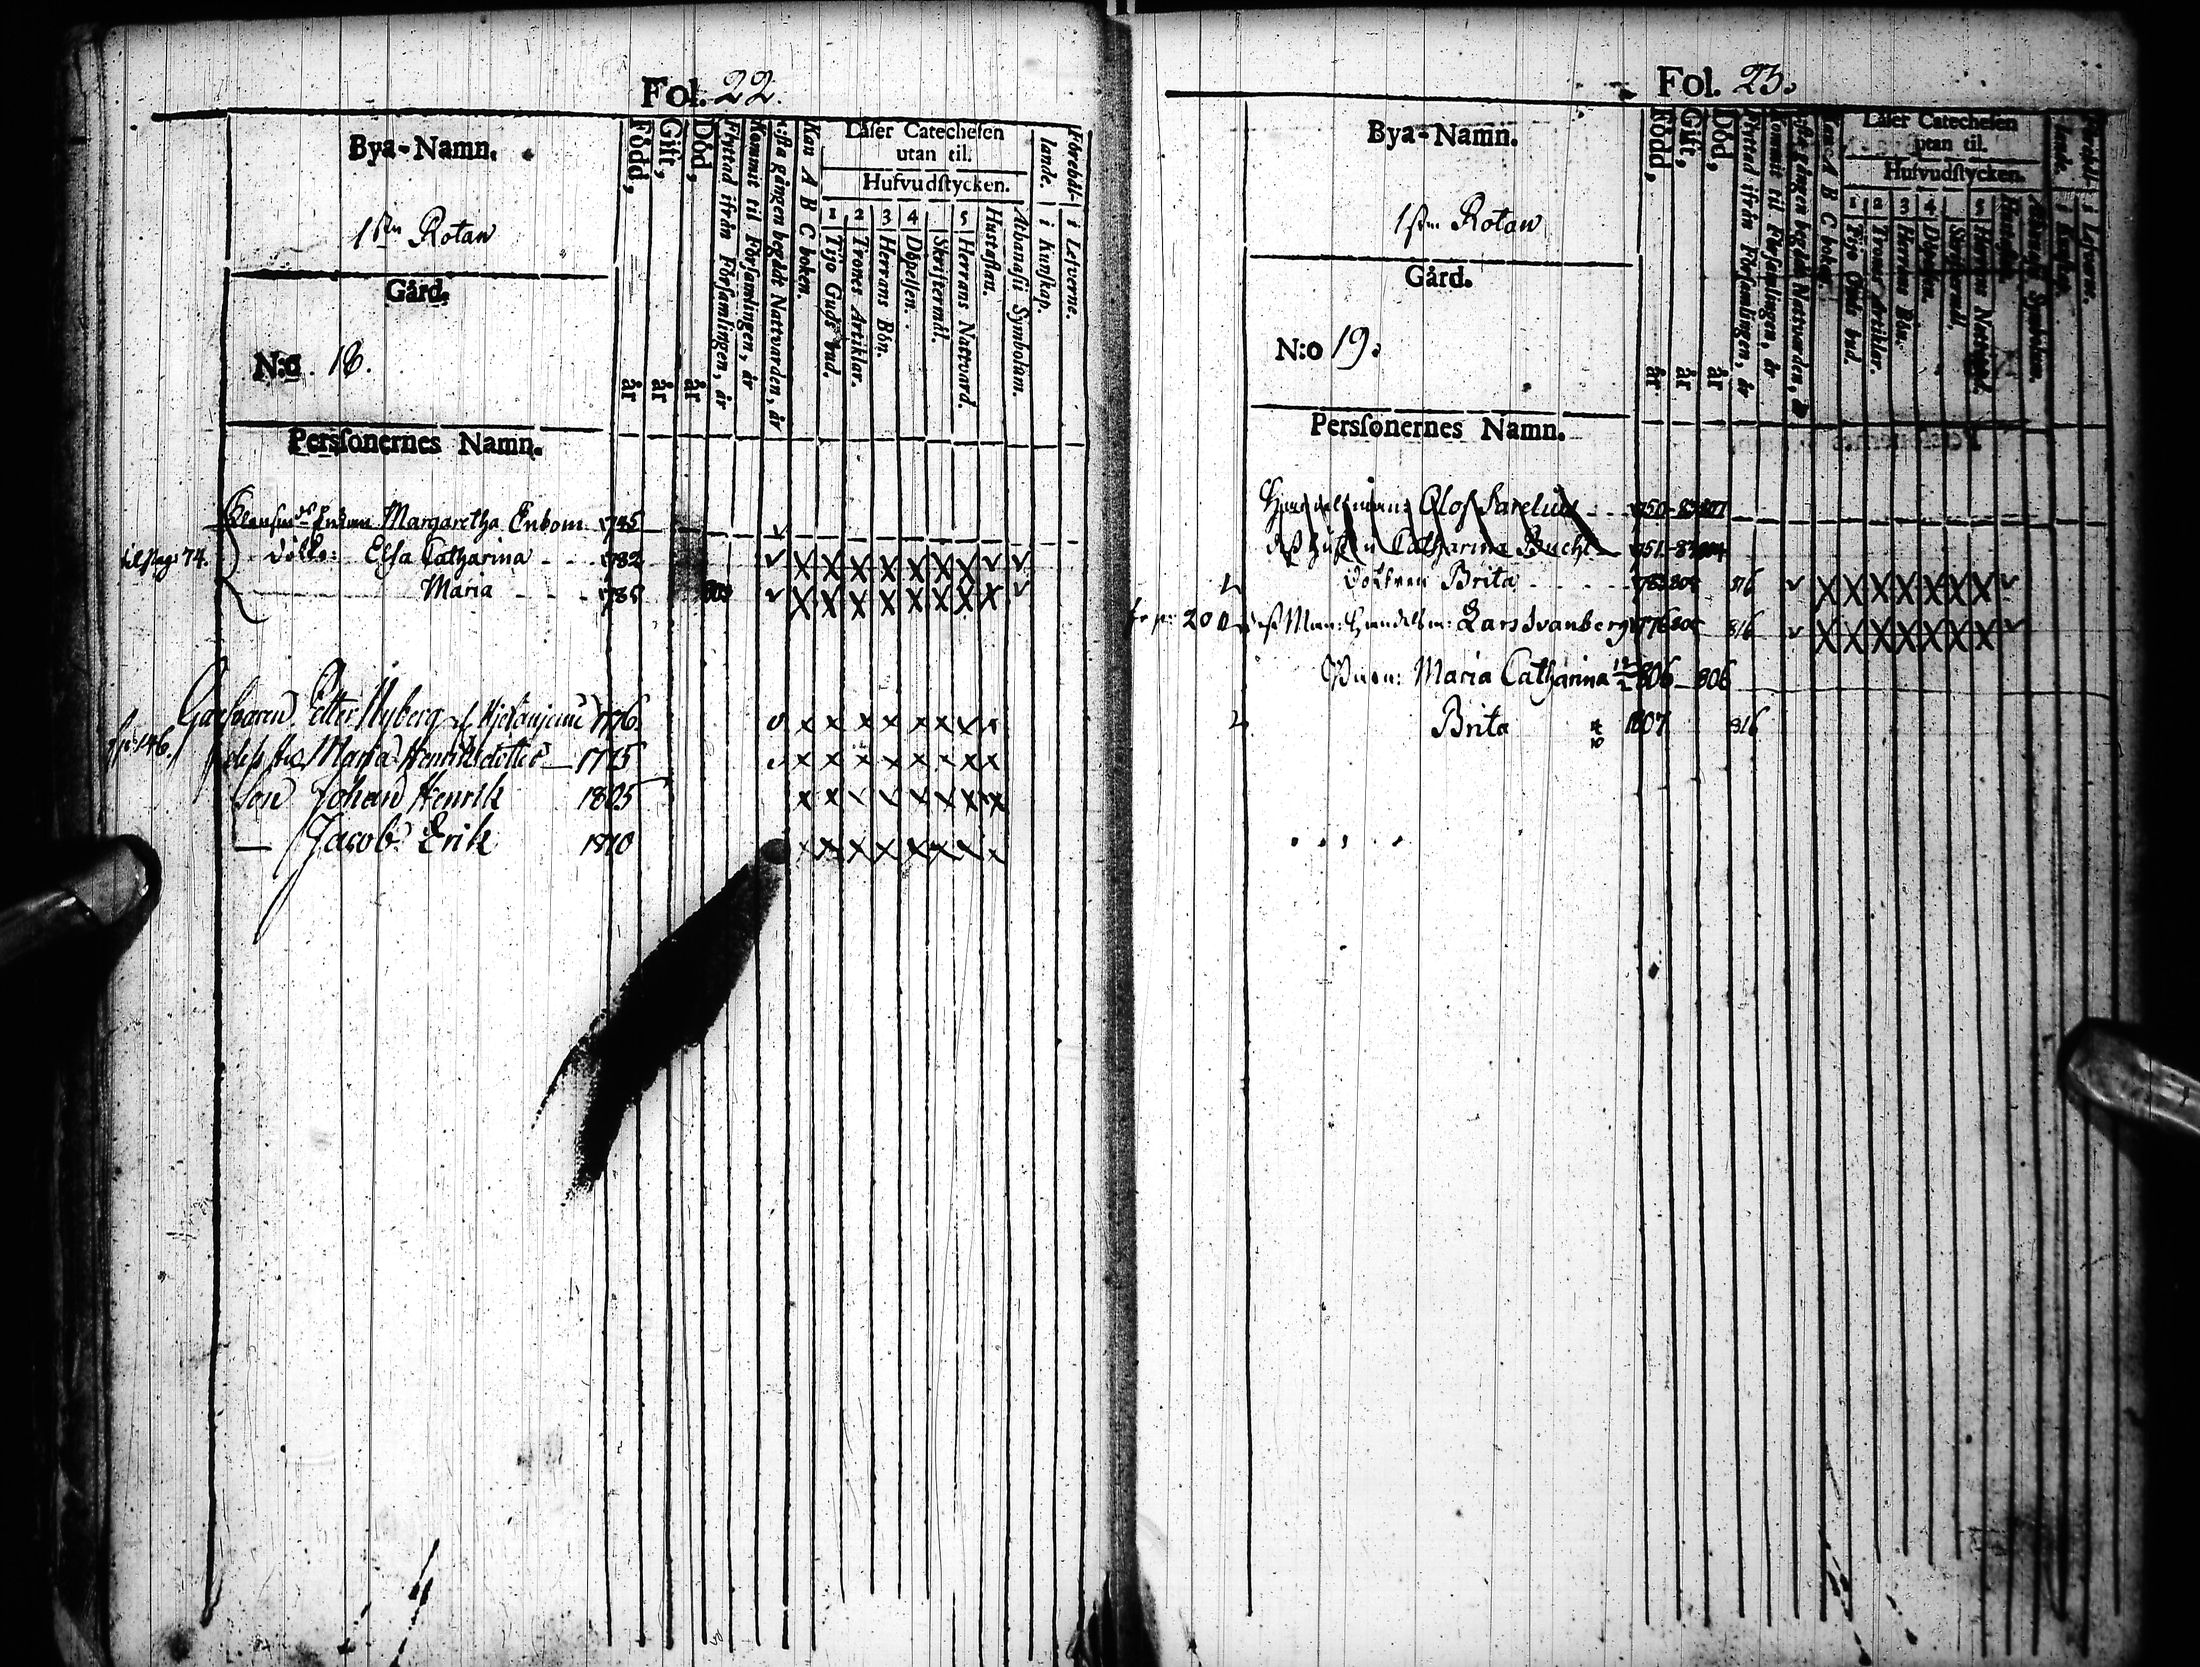 Fol. 22.
Bya-Namn.
1sta Rotan
Gård.
N:o 18.
Persfonernes Namn.
Född, år
Gift, år
Död, år
Flyttad ifrån Församlingen, år
Kommit til Församlingen, år
1:sta gången begådt Nattvarden, år
Kan A B C boken.
Läser Catechesen
utan til.
Hufvudstycken.
1 2 3 4 5
Tijo Guds bud.
Trones Artiklar.
Herrans Bön.
Döpelsen.
Skriftermål.
Herrans Nattvard.
Hustaflan.
Athanasii Symbolum.
Förehål-
lande.
i Kunskap.
i Lefverne.
Enkan Margaretha Enbom 1745
til pag: 74. Elsa Catharina - - 1782
Maria - - - 1785 803
Petter Nyberg 1776
146. dess hu Maria Henriksdotter 1775
Son Johan Henrik 1805
— Jacob Erik 1810
Fol. 23.
Bya-Namn.
1sta Rotan
Gård.
N:o 19.
Persfonernes Namn.
Född, år
Gift, år
Död, år
Flyttad ifrån Församlingen, år
Kommit til Församlingen, år
1:sta gången begådt Nattvarden, år
Kan A B C boken.
Läser Catechesen
utan til.
Hufvudstycken.
1 2 3 4 5
Tijo Guds bud.
Trones Artiklar.
Herrans Bön.
Döpelsen.
Skriftermål.
Herrans Nattvard.
Hustaflan.
Athanasii Symbolum.
Förehål-
lande.
i Kunskap.
i Lefverne.
Handelsman: Olof - - 1750
Catharina 1751
Dottren Brita - - - 1783 804 816
Man: Handelsm: Lars Svanberg 1776 804 816
Maria Catharina 12/2 806 806
Brita 1807 816